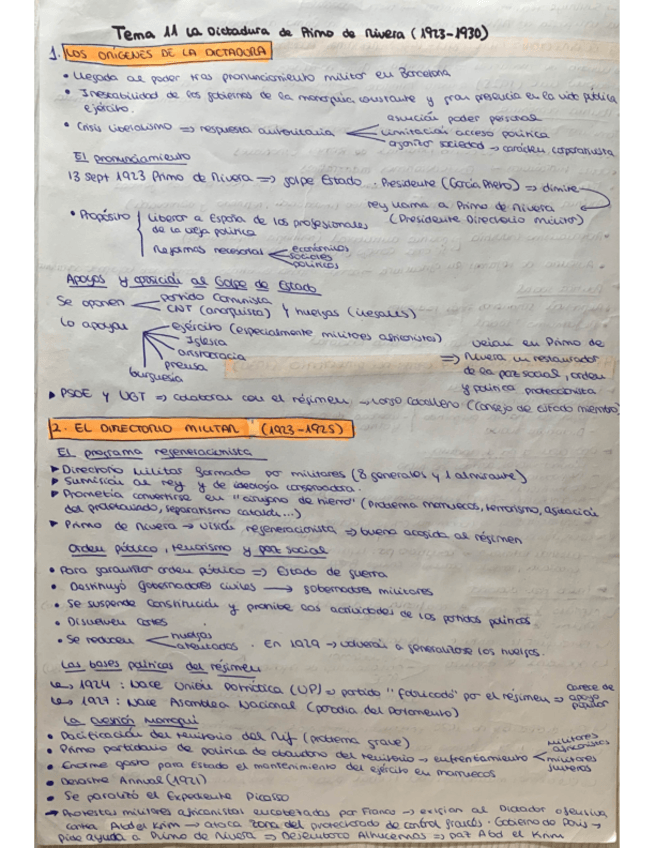 Tema 11 La Dictadura de Primo de Rivera (1923-1930)
1. LOS ORÍGENES DE LA DICTADURA
• Llegada al poder tras pronunciamiento militar en Barcelona
• Inestabilidad de los gobiernos de la monarquía y gran presencia en la vida pública
ejército.
• Crisis liberalismo => respuesta autoritaria
asunción poder personal
limitación acceso política
sociedad → carácter corporativista
El pronunciamiento
13 Sept 1923 Primo de Rivera => golpe Estado. Presidente (García Prieto) => dimite
rey llama a Primo de Rivera
(Presidente Directorio militar)
• Propósito
Liberar a España de los profesionales
de la vieja política
Reformas necesarias
económicas
sociales
políticas
Apoyos y oposición al Golpe de Estado
Se oponen
partido Comunista
CNT (anarquista) y huelgas (ilegales)
Lo apoyan
ejército (especialmente militares africanistas)
Iglesia
aristocracia
prensa
burguesía
=>
veían en Primo de
Rivera un restaurador
de la paz social, orden
y política proteccionista
▸ PSOE y UGT => colaboran con el régimen → Largo Caballero (Consejo de estado miembro)
2. EL DIRECTORIO MILITAR (1923-1925)
El programa regeneracionista
▸ Directorio militar formado por militares (8 generales y 1 almirante)
▸ Sumisión al rey y de ideología conservadora.
▸ Prometía convertirse en "cirujano de hierro" (Problema marruecos, terrorismo, agitación
del proletariado, separatismo catalán...)
▸ Primo de Rivera → visión regeneracionista => buena acogida al régimen
Orden público, terrorismo y paz social
• Para garantizar orden público => Estado de guerra
• Destituyó gobernadores civiles → gobernadores militares
• Se suspende Constitución y prohibe las actividades de los partidos políticos
• Disuelven cortes
• Se reducen
huelgas
atentados
. En 1929 → volverán a generalizarse las huelgas.
Las bases políticas del régimen
↳ 1924: Nace Unión Patriótica (UP) => partido "fabricado" por el régimen => carece de
apoyo
popular
↳ 1927: Nace Asamblea Nacional (parodia del Parlamento)
La cuestión marroquí
• Pacificación del territorio del Rif (problema grave)
• Primo partidario de política de abandono del territorio → enfrentamiento
militares
africanistas
militares
junteros
• Enorme gasto para Estado el mantenimiento del ejército en marruecos
• Desastre Annual (1921)
• Se paralizó el Expediente Picasso
→ Protestas militares africanistas encabezadas por Franco → exigían al Dictador ofensiva
contra Abd el Krim → ataca zona del protectorado de control francés. Gobierno de París →
Pide ayuda a Primo de Rivera => Desembarco Alhucemas => paz Abd el Krim